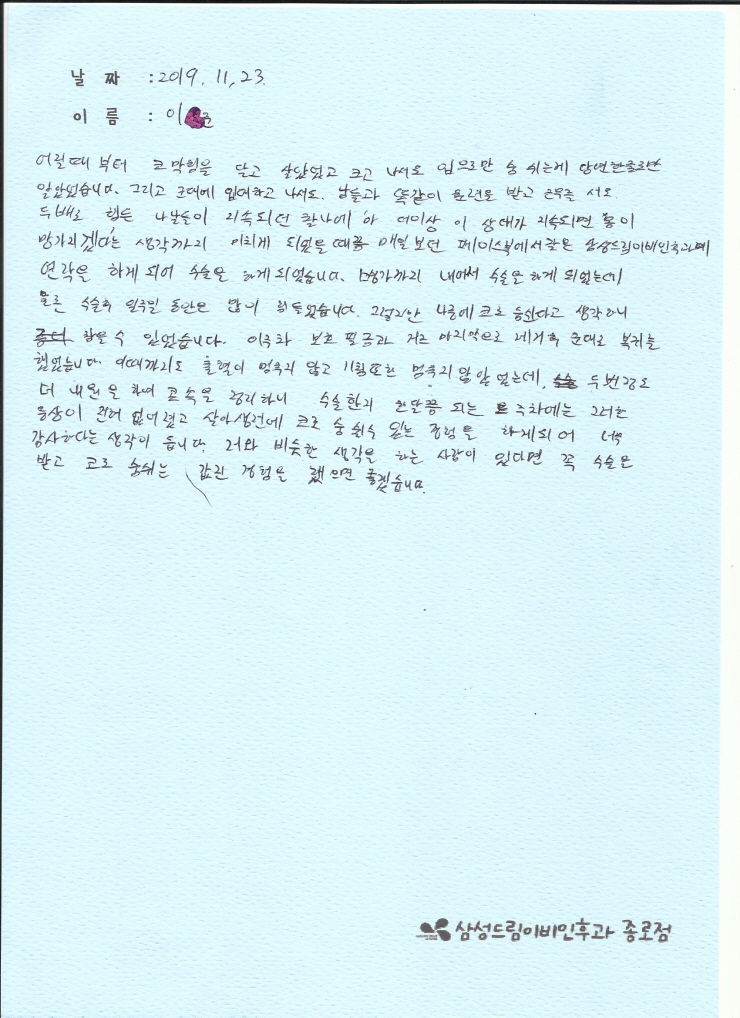 날 짜 : 2019. 11, 23.
이 름 : 이 준
어릴때 부터 코막힘을 달고 살았었고 크고 나서도 입으로만 숨 쉬는게 당연한줄로만
알았었습니다. 그리고 군대에 입대하고 나서도. 남들과 똑같이 훈련을 받고 근무를 서도
두배로 힘든 나날들이 지속되던 찰나에 아 더이상 이 상태가 지속되면 몸이
망가지겠다는 생각까지 이르게 되었을때쯤 매일보던 페이스북에서 같은 삼성드림이비인후과에
연락을 하게되어 수술을 하게되었습니다. 병가까지 내어서 수술을 하게 되었는데
물론 수술후 일주일 동안은 많이 힘들었습니다. 그렇지만 나중에 코로 숨쉰다고 생각하니
참을 수 있었습니다. 이주차 보호 필름과 거즈 마지막으로 제거후 군대로 복귀를
했었습니다. 이때까지도 출혈이 멈추지 않고 기침또한 멈추지 않았었는데, 두번정도
더 내원을 하여 코속을 정리하니 수술한지 한달쯤 되는 주차에는 그러한
증상이 전혀 없어졌고 살아생전에 코로 숨 쉴수 있는 경험을 하게되어 너무
감사하다는 생각이 듭니다. 저와 비슷한 생각을 하는 사람이 있다면 꼭 수술을
받고 코로 숨쉬는 값진 경험을 했으면 좋겠습니다.
삼성드림이비인후과 종로점